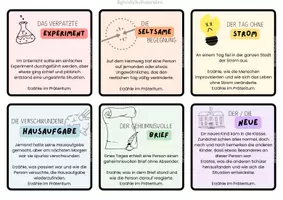 DAS VERPATZTE
EXPERIMENT
Im Unterricht sollte ein einfaches
Experiment durchgeführt werden, aber
etwas ging schief und plötzlich
entstand eine ungewollte Situation.
Erzähle im Präteritum.
DIE
SELTSAME
BEGEGNUNG
Auf dem Schulweg traf eine Person
auf jemanden oder etwas
Ungewöhnliches, das den
restlichen Tag völlig veränderte.
Erzähle im Präteritum.
DER TAG OHNE
STROM
An einem Tag fiel in der ganzen Stadt
der Strom aus.
Erzähle, wie die Menschen
improvisierten und wie sich das Leben
ohne Strom veränderte.
Erzähle im Präteritum.
DIE VERSCHWUNDENE
HAUSAUFGABE
Jemand hatte seine Hausaufgabe
gemacht, aber am nächsten Morgen
war sie spurlos verschwunden.
Erzähle, was passiert war und wie die
Person versuchte, die Hausaufgabe
wiederzufinden.
Erzähle im Präteritum.
DER GEHEIMNISVOLLE
BRIEF
Eines Tages erhielt eine Person einen
geheimnisvollen Brief ohne Absender.
Erzähle, was in dem Brief stand und
wie die Person darauf reagierte.
Erzähle im Präteritum.
DER / DIE
NEUE
Ein neues Kind kam in die Klasse.
Zunächst schien alles normal, doch
nach und nach bemerkten die anderen
Kinder, dass etwas Besonderes an
dieser Person war.
Erzähle, was die anderen Schüler
herausfanden und wie sich die
Situation entwickelte.
Erzähle im Präteritum.